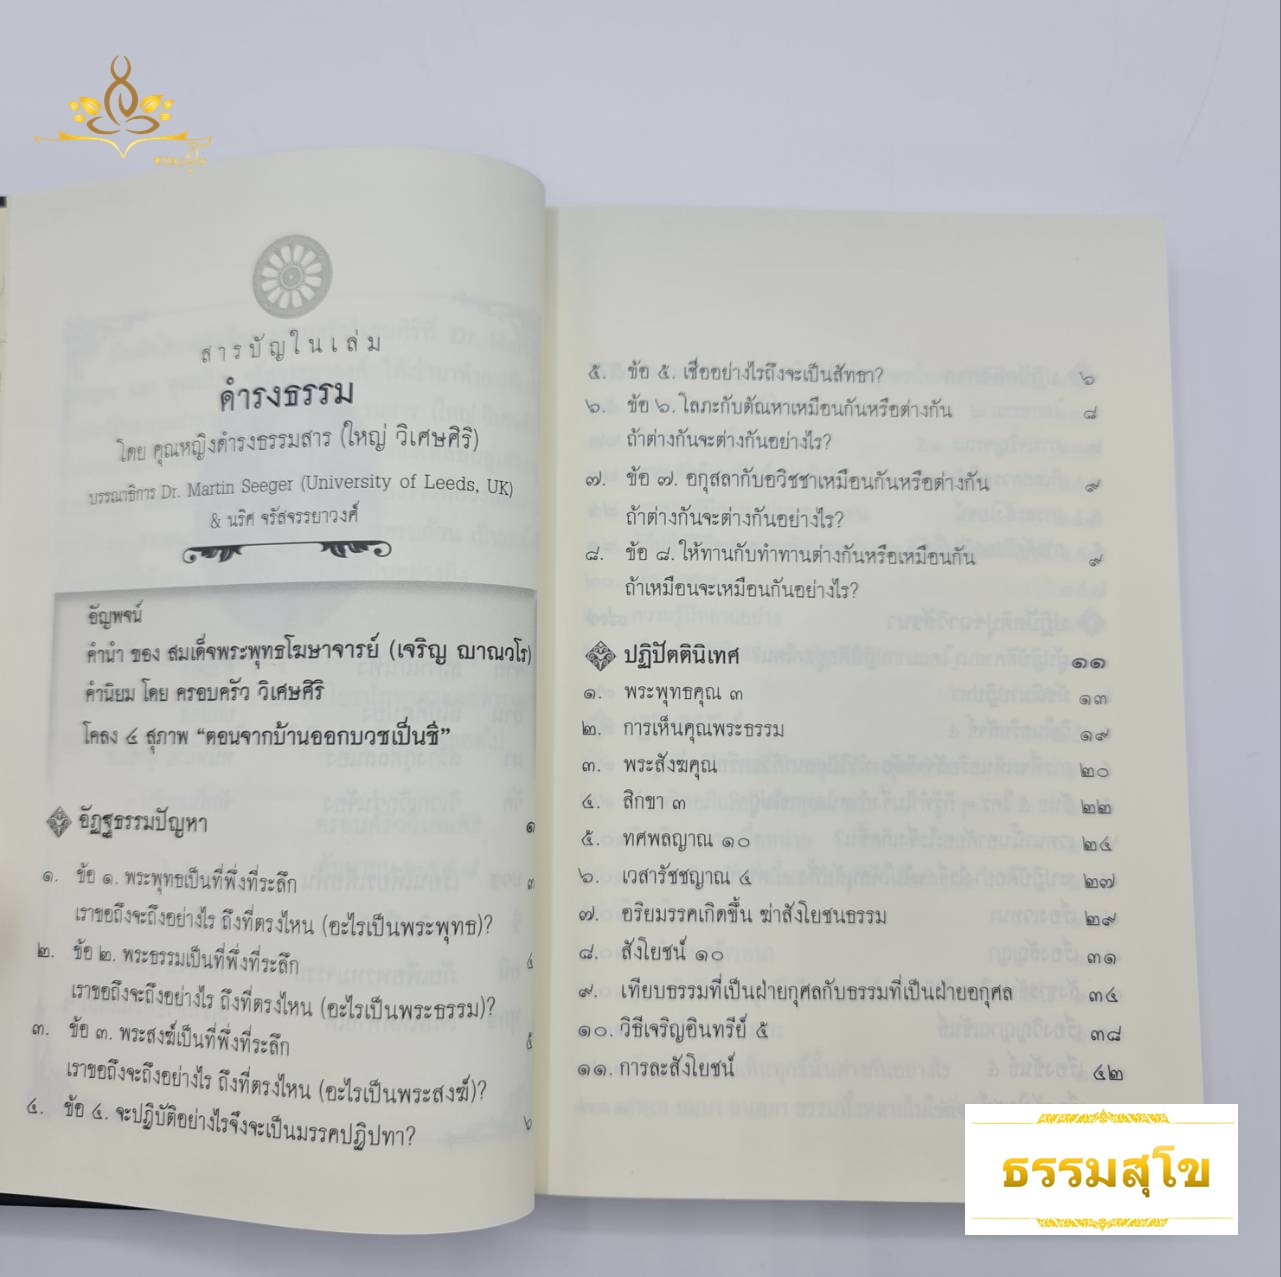 สารบัญในเล่ม
ดำรงธรรม
โดย คุณหญิงดำรงธรรมสาร (ใหญ่ วิเศษศิริ)
บรรณาธิการ Dr. Martin Seeger (University of Leeds, UK)
& นริศ จรัสจรรยาวงศ์
อัญพจน์
คำนำ ของ สมเด็จพระพุทธโฆษาจารย์ (เจริญ ญาณวโร)
คำนิยม โดย ครอบครัว วิเศษศิริ
โคลง ๔ สุภาพ “ตอนจากบ้านออกบวชเป็นชี”
อัฏฐธรรมปัญหา ๑
๑. ข้อ ๑. พระพุทธเป็นที่พึ่งที่ระลึก ๓
เราขอถึงจะถึงอย่างไร ถึงที่ตรงไหน (อะไรเป็นพระพุทธ)?
๒. ข้อ ๒. พระธรรมเป็นที่พึ่งที่ระลึก ๔
เราขอถึงจะถึงอย่างไร ถึงที่ตรงไหน (อะไรเป็นพระธรรม)?
๓. ข้อ ๓. พระสงฆ์เป็นที่พึ่งที่ระลึก ๕
เราขอถึงจะถึงอย่างไร ถึงที่ตรงไหน (อะไรเป็นพระสงฆ์)?
๔. ข้อ ๔. จะปฏิบัติอย่างไรจึงจะเป็นมรรคปฏิปทา? ๖
๕. ข้อ ๕. เชื่ออย่างไรถึงจะเป็นสัทธา? ๖
๖. ข้อ ๖. โลภะกับตัณหาเหมือนกันหรือต่างกัน ๘
ถ้าต่างกันจะต่างกันอย่างไร?
๗. ข้อ ๗. อกุสลากับอวิชชาเหมือนกันหรือต่างกัน ๙
ถ้าต่างกันจะต่างกันอย่างไร?
๘. ข้อ ๘. ให้ทานกับทำทานต่างกันหรือเหมือนกัน ๙
ถ้าเหมือนจะเหมือนกันอย่างไร?
ปฏิปัตตินิเทศ ๑๑
๑. พระพุทธคุณ ๓ ๑๓
๒. การเห็นคุณพระธรรม ๑๙
๓. พระสังฆคุณ ๒๐
๔. สิกขา ๓ ๒๒
๕. ทศพลญาณ ๑๐ ๒๔
๖. เวสารัชชญาณ ๔ ๒๗
๗. อริยมรรคเกิดขึ้น ฆ่าสังโยชนธรรม ๒๙
๘. สังโยชน์ ๑๐ ๓๑
๙. เทียบธรรมที่เป็นฝ่ายกุศลกับธรรมที่เป็นฝ่ายอกุศล ๓๔
๑๐. วิธีเจริญอินทรีย์ ๕ ๓๘
๑๑. การละสังโยชน์ ๔๒
ธรรมสุโข